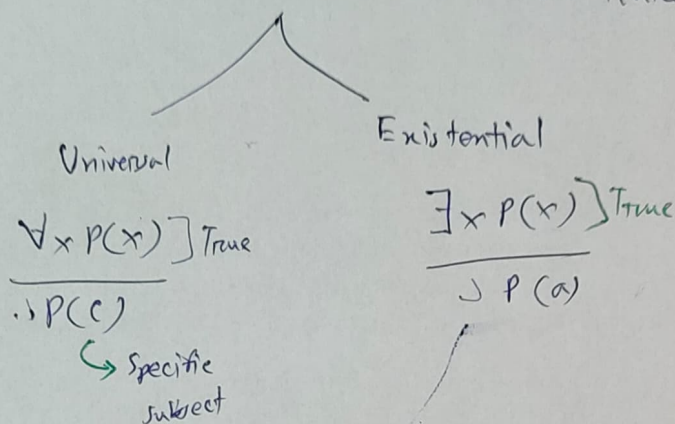 Universal
∀x P(x) ] True
∴ P(c)
↳ Specific
subject
Existential
∃x P(x) ] True
∴ P(a)